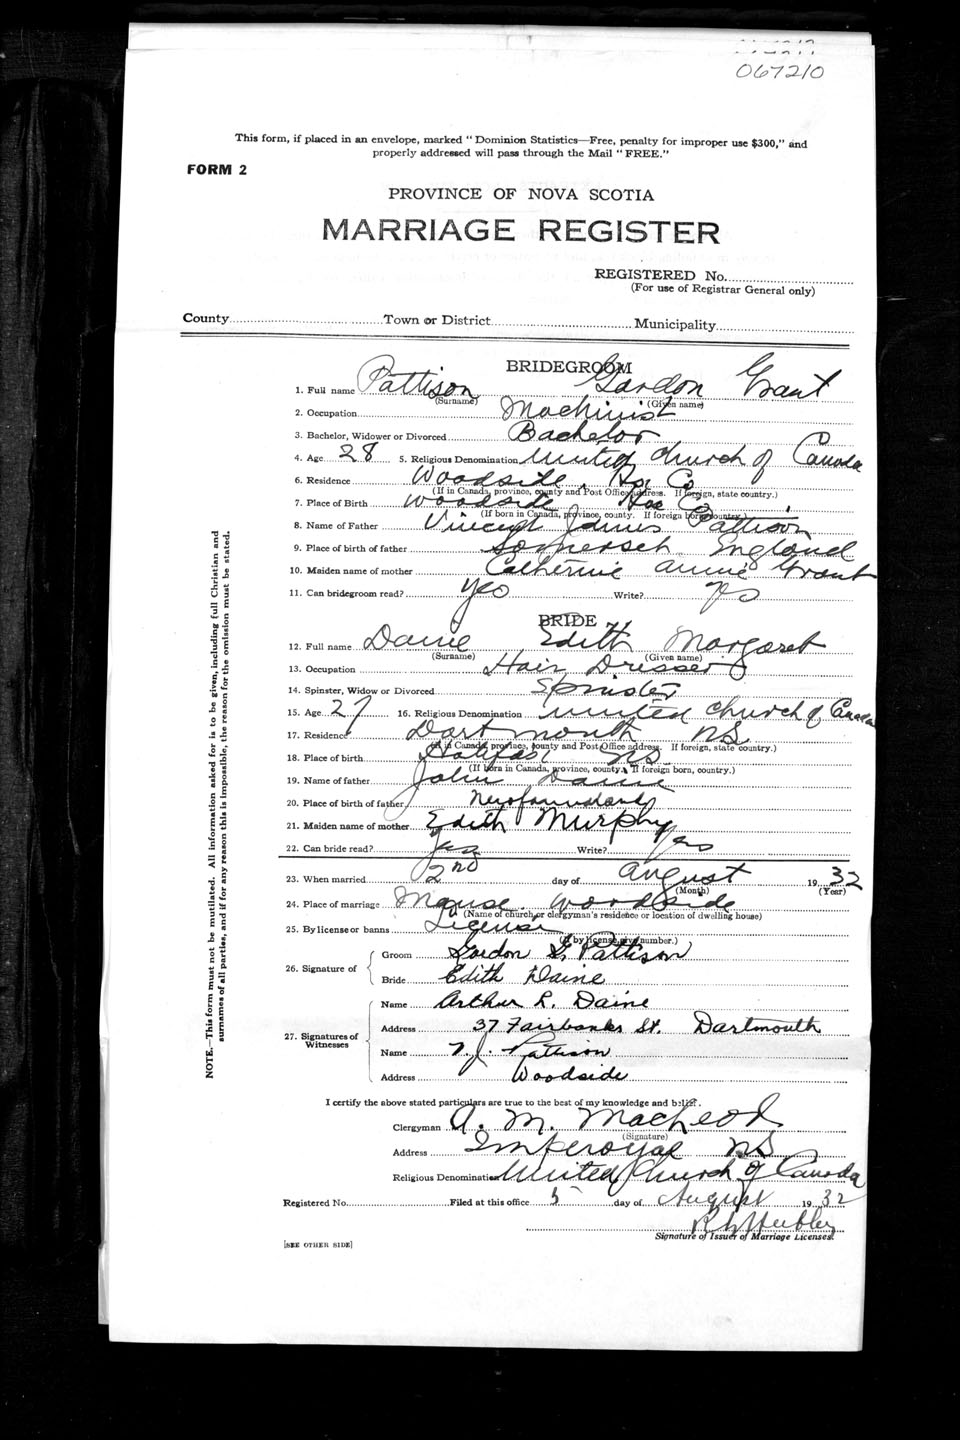 067210
This form, if placed in an envelope, marked " Dominion Statistics—Free, penalty for improper use $300," and
properly addressed will pass through the Mail " FREE."
FORM 2
PROVINCE OF NOVA SCOTIA
MARRIAGE REGISTER
REGISTERED No.
(For use of Registrar General only)
County Town or District Municipality
BRIDEGROOM
1. Full name Pattison Gordon Grant
(Surname) (Given name)
2. Occupation Machinist
3. Bachelor, Widower or Divorced Bachelor
4. Age 28 5. Religious Denomination United Church of Canada
6. Residence Woodside Hfx Co
(If in Canada, province, county and Post Office address. If foreign, state country.)
7. Place of Birth Woodside Hfx Co
(If born in Canada, province, county. If foreign born, country.)
8. Name of Father Vincent James Pattison
9. Place of birth of father Somerset England
10. Maiden name of mother Catherine Annie Grant
11. Can bridegroom read? Yes Write? Yes
BRIDE
12. Full name Daine Edith Margaret
(Surname) (Given name)
13. Occupation Hair Dresser
14. Spinster, Widow or Divorced Spinster
15. Age 27 16. Religious Denomination United Church of Canada
17. Residence Dartmouth NS
(If in Canada, province, county and Post Office address. If foreign, state country.)
18. Place of birth Halifax NS
(If born in Canada, province, county. If foreign born, country.)
19. Name of father John Daine
20. Place of birth of father Newfoundland
21. Maiden name of mother Edith Murphy
22. Can bride read? Yes Write? Yes
23. When married 2nd day of August 1932
(Month) (Year)
24. Place of marriage Manse Woodside
(Name of church or clergyman's residence or location of dwelling house)
25. By license or banns License
(If by license give number.)
26. Signature of Groom Gordon G. Pattison
Bride Edith Daine
27. Signatures of Witnesses Name Arthur L. Daine
Address 37 Fairbanks St. Dartmouth
Name V. J. Pattison
Address Woodside
I certify the above stated particulars are true to the best of my knowledge and belief.
Clergyman A. M. MacLeod
(Signature)
Address Imperoyal NS
Religious Denomination United Church of Canada
Registered No. Filed at this office 5 day of August 1932
Signature of Issuer of Marriage Licenses.
[SEE OTHER SIDE]
NOTE.—This form must not be mutilated. All information asked for is to be given, including full Christian and
surnames of all parties, and if for any reason this is impossible, the reason for the omission must be stated.